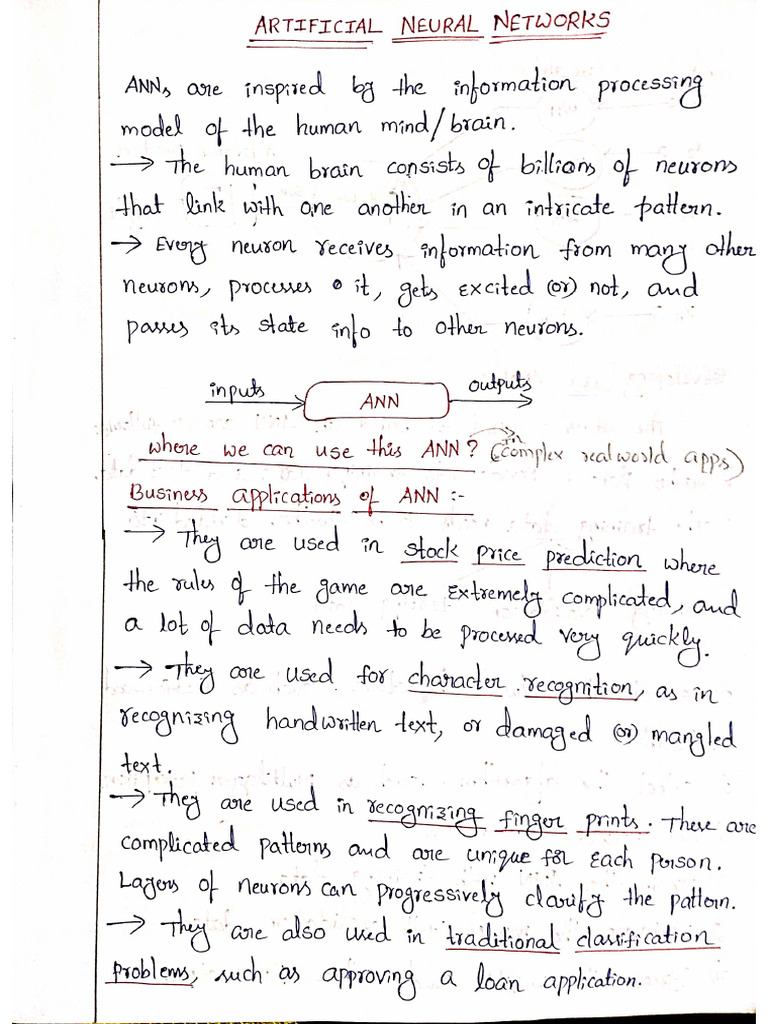 ARTIFICIAL NEURAL NETWORKS
ANNs are inspired by the information processing
model of the human mind/brain.
→ The human brain consists of billions of neurons
that link with one another in an intricate pattern.
→ Every neuron receives information from many other
neurons, processes it, gets excited (or) not, and
passes its state info to other neurons.
inputs ANN outputs
where we can use this ANN? (in complex realworld apps)
Business applications of ANN :-
→ They are used in stock price prediction where
the rules of the game are extremely complicated, and
a lot of data needs to be processed very quickly.
→ They are used for character recognition, as in
recognizing handwritten text, or damaged (or) mangled
text.
→ They are used in recognizing finger prints. These are
complicated patterns and are unique for each person.
Layers of neurons can progressively clarify the pattern.
→ They are also used in traditional classification
problems, such as approving a loan application.